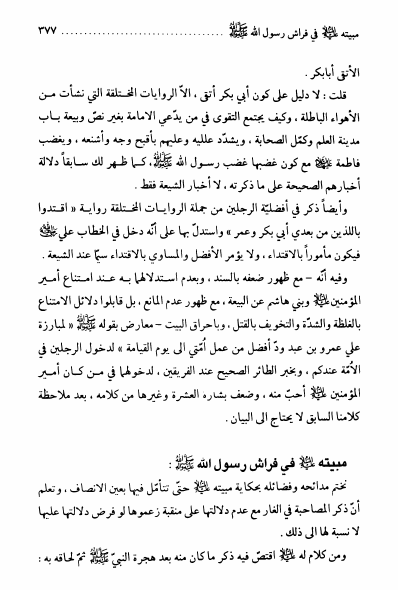 مبيته ﷺ في فراش رسول الله ﷺ .................................... ٣٧٧
الأتقى أبابكر .
قلت : لا دليل على كون أبي بكر أتقى ، الاّ الروايات المختلقة التي نشأت من
الأهواء الباطلة ، وكيف يجتمع التقوى في من يدّعي الامامة بغير نصّ وبيعة باب
مدينة العلم وكمّل الصحابة ، ويشدّد علليه وعليهم بأقبح وجه وأشنعه ، ويغضب
فاطمة عليها السلام مع كون غضبها غضب رسول الله ﷺ ، كما ظهر لك سابقاً دلالة
أخبارهم الصحيحة على ما ذكرته ، لا أخبار الشيعة فقط .
وأيضاً ذكر في أفضليّة الرجلين من جملة الروايات المختلقة رواية « اقتدوا
باللذين من بعدي أبي بكر وعمر » واستدلّ بها على أنّه دخل في الخطاب علي عليه السلام
فيكون مأموراً بالاقتداء ، ولا يؤمر الأفضل والمساوي بالاقتداء سيّما عند الشيعة .
وفيه أنّه – مع ظهور ضعفه بالسند ، وبعدم استدلالهما به عند امتناع أمير
المؤمنين عليه السلام وبني هاشم عن البيعة ، مع ظهور عدم المانع ، بل قابلوا دلائل الامتناع
بالغلظة والشدّة والتخويف بالقتل ، وباحراق البيت – معارض بقوله ﷺ « لمبارزة
علي عمرو بن عبد ودّ أفضل من عمل أمّتي الى يوم القيامة » لدخول الرجلين في
الأمّة عندكم ، وبخبر الطائر الصحيح عند الفريقين ، لدخولهما في من كان أمير
المؤمنين عليه السلام أحبّ منه ، وضعف بشاره العشرة وغيرها من كلامه ، بعد ملاحظة
كلامنا السابق لا يحتاج الى البيان .
مبيته عليه السلام في فراش رسول الله ﷺ :
نختم مدائحه وفضائله بحكاية مبيته عليه السلام حتّى تتأمّل فيها بعين الانصاف ، وتعلم
أنّ ذكر المصاحبة في الغار مع عدم دلالتها على منقبة زعموها لو فرض دلالتها عليها
لا نسبة لها الى ذلك .
ومن كلام له عليه السلام اقتصّ فيه ذكر ما كان منه بعد هجرة النبيّ ﷺ ثمّ لحاقه به :